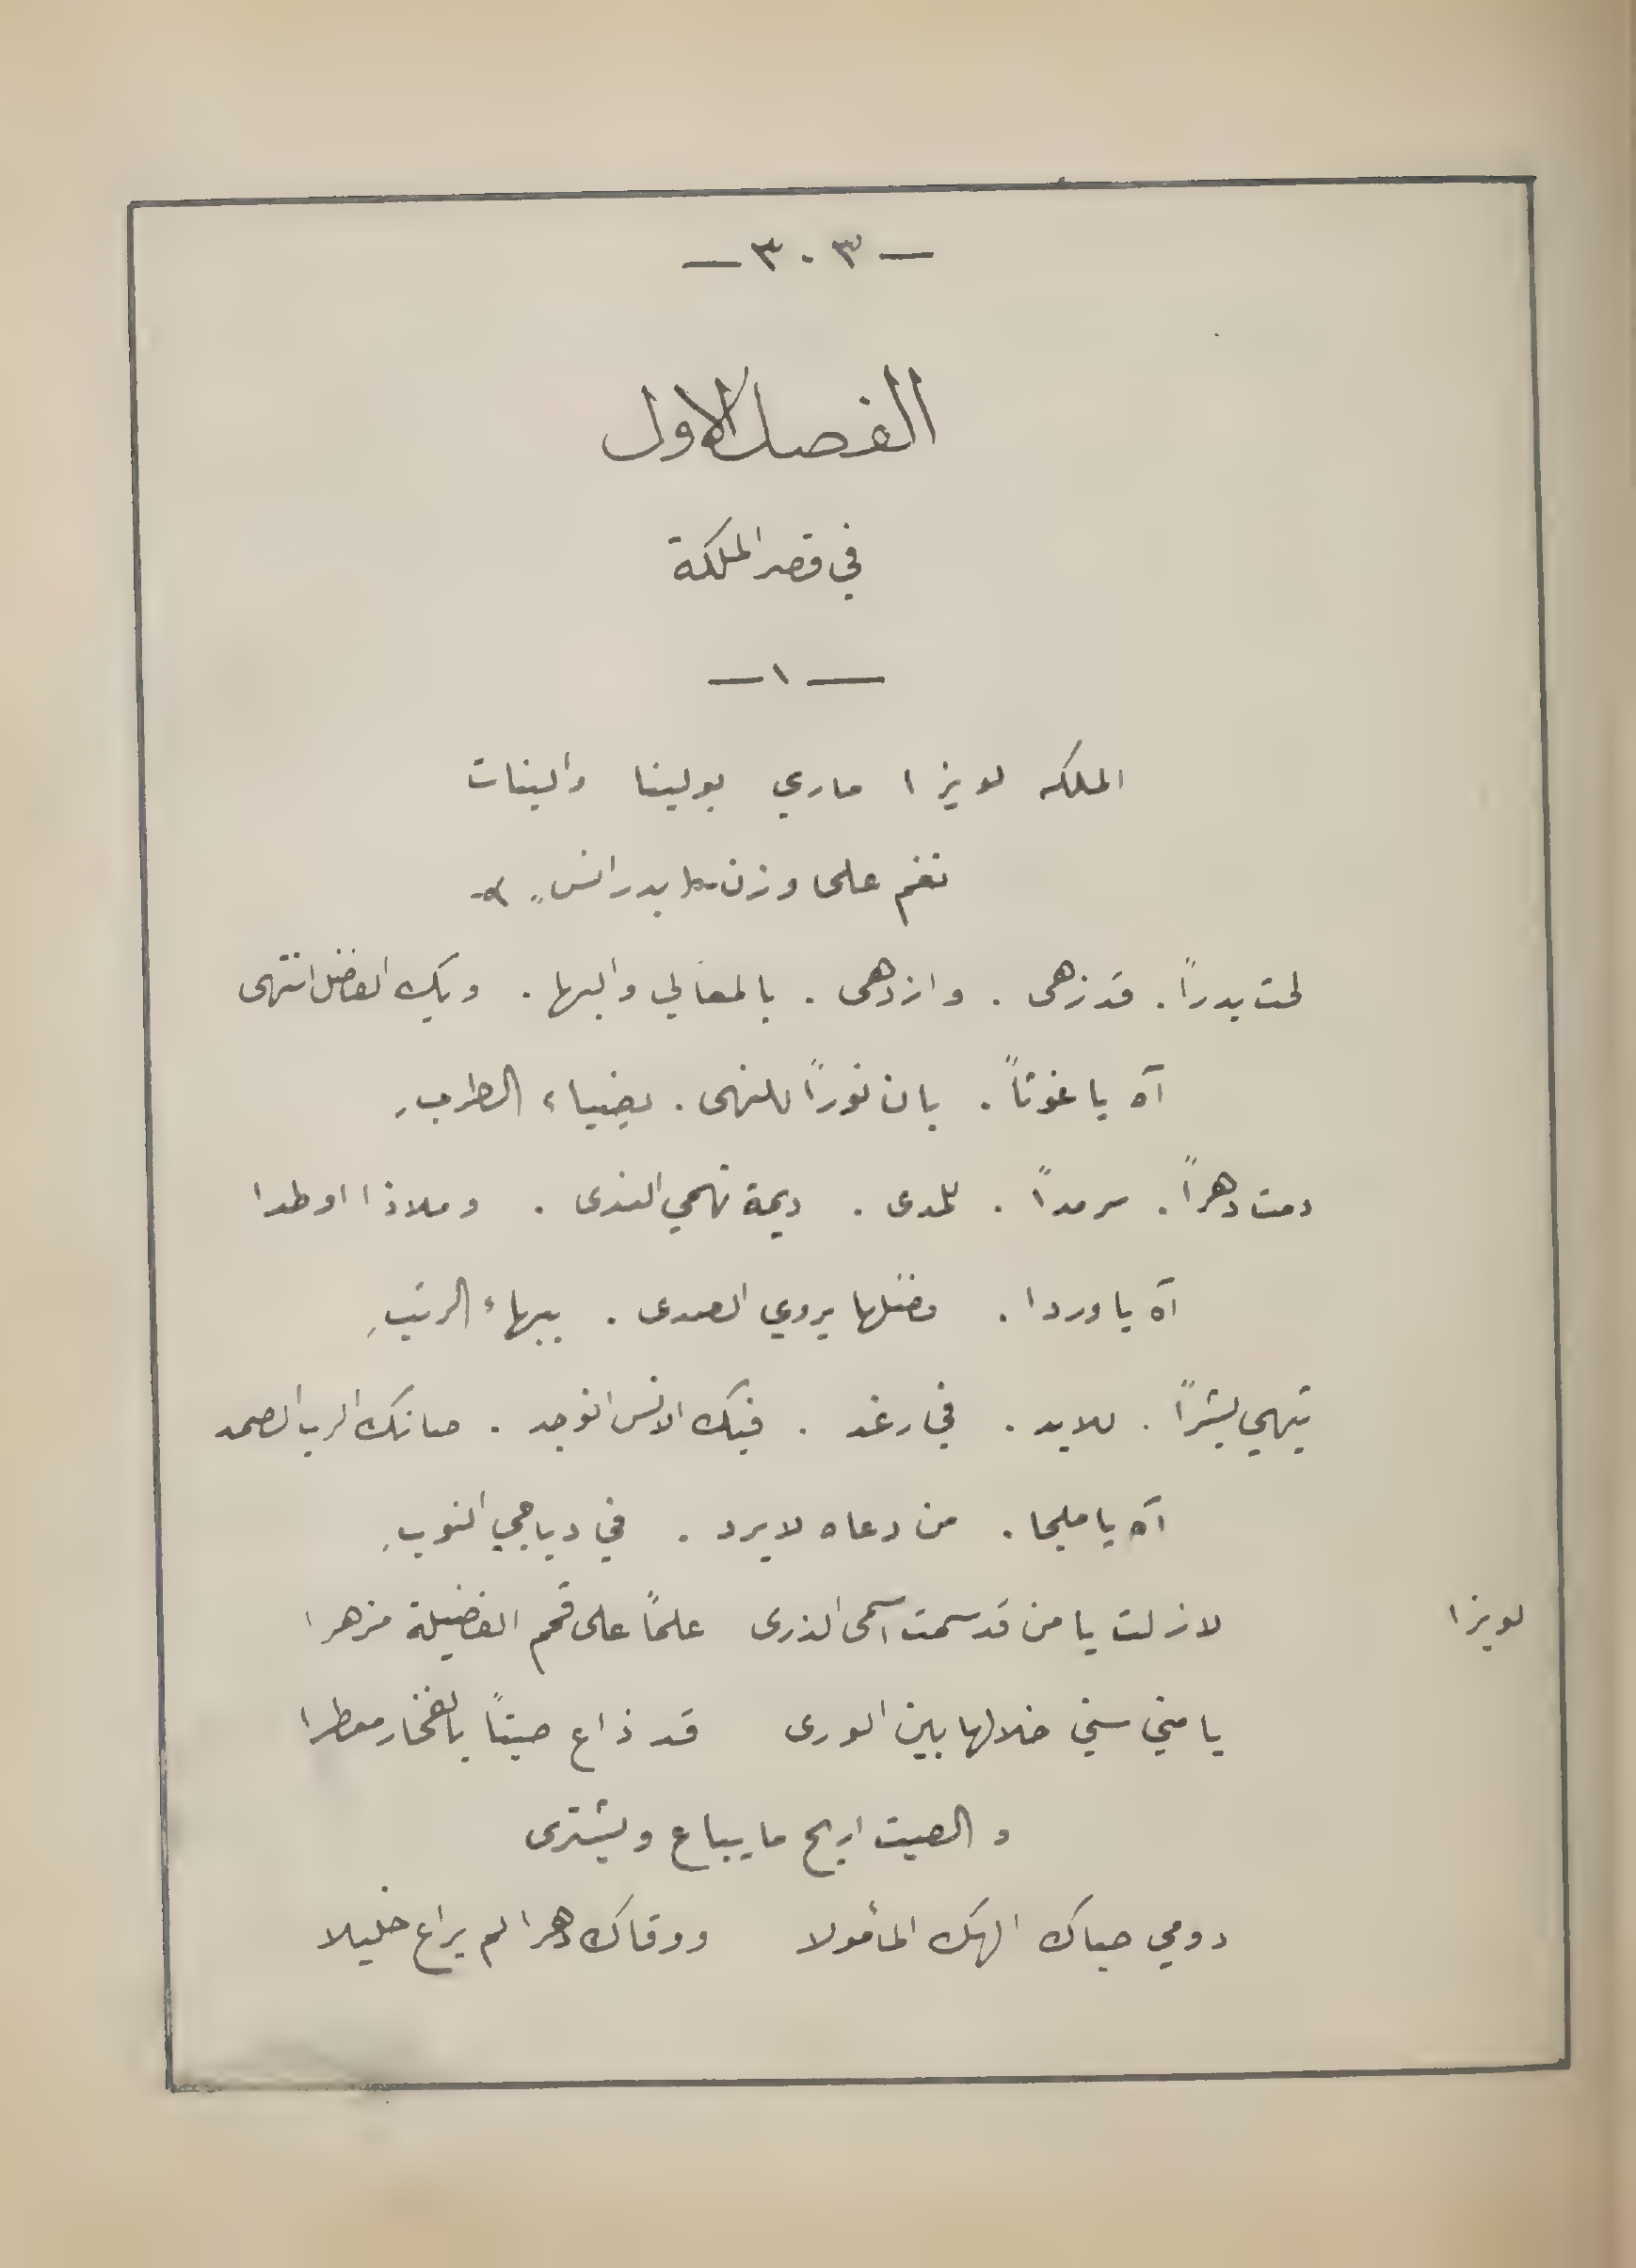 — ٣٠٣ —
الفصل الاول
في قصر الملكة
— ١ —
الملكه لويزا ماري بولينا والبنات
نغم على وزن بدر انس
لحت بدراً . قد زهى . وازدهى . بالمعالي والبها . وبك الفضل انتهى
آه يا غوثاً . بان نوراً للنهى . بضياء الطرب
دمت دهراً . سرمداً . للمدى . ديمة تهمي الندى . وملاذا اوطدا
آه يا وردا . فضلها يروي الصدى . ببهاء الرتبِ
تيهي بشراً . للابد . في رغد . فبك الانس انوجد . صانك الرب الصمد
آه يا ملجا . من دعاه لا يرد . في دياجي النوبِ
لويزا لا زلت يا من قد سمت اسمى الذرى علماً على قمم الفضيلة مزهرا
يا من سني خلالها بين الورى قد ذاع صيتاً بالفخار معطرا
والصيت اربح ما يباع ويشترى
دومي حباك الهك المأمولا ووقاك دهرا لم يراع خليلا